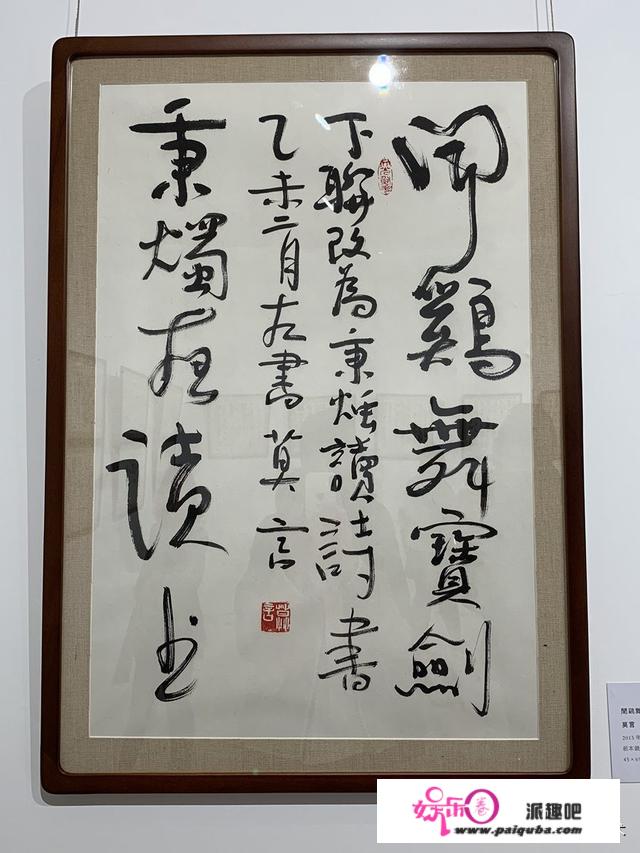 聞鷄舞寶劍
下聯改為秉烛讀詩書
乙未二月左書莫言
秉燭夜读书
莫言
聞鷄舞
莫言
2015年
紙本鏡
45×6
娱乐圈 派趣吧
www.paiquba.com